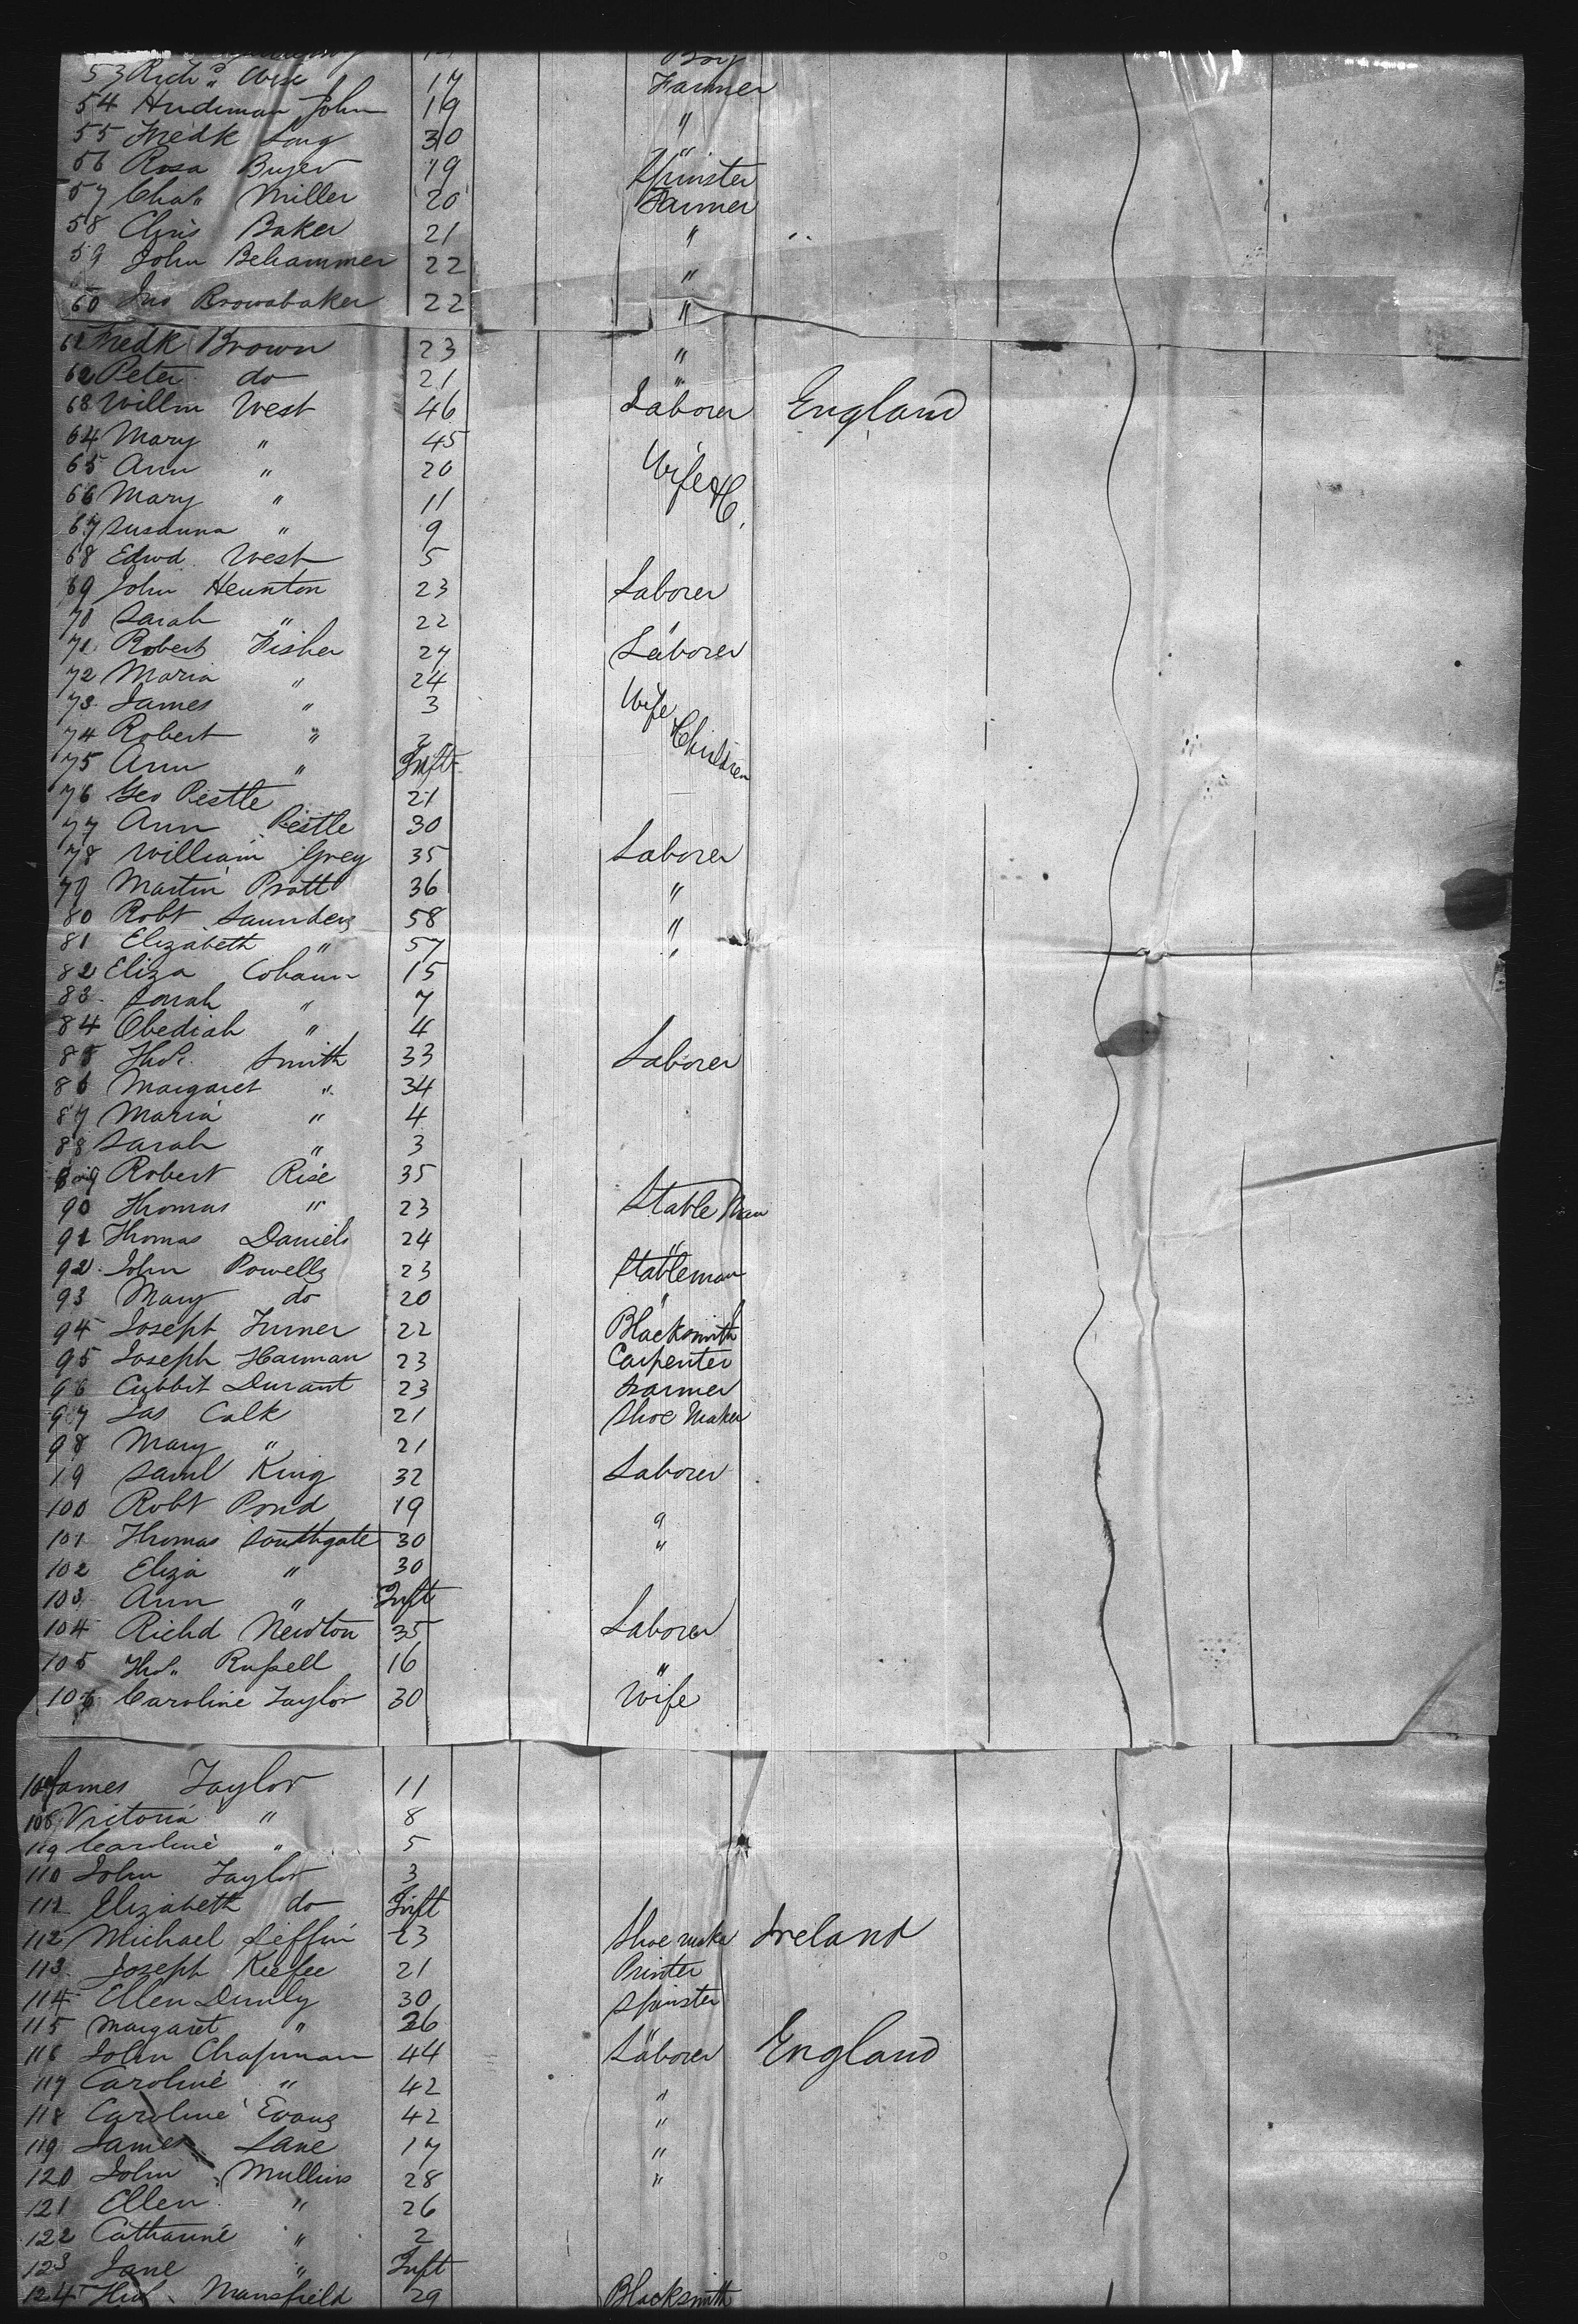 Boy
53 Richd. Wise 17 Farmer
54 Hudiman John 19 "
55 Fredk Long 30 "
56 Rosa Buyer 19 Spinster
57 Chas. Miller 20 Farmer
58 Chris Baker 21 "
59 John Behammer 22 "
60 Jno Browabaker 22 "
61 Fredk Brown 23 "
62 Peter do 21 "
63 Willm West 46 Laborer England
64 Mary " 45
65 Ann " 20 Wife &c.
66 Mary " 11
67 Susanna " 9
68 Edwd West 5
69 John Heunton 23 Laborer
70 Sarah " 22 "
71 Robert Fisher 27 Laborer
72 Maria " 24
73 James " 3 Wife
74 Robert " 2 & Children
75 Ann " Inft
76 Geo Pestle 21
77 Ann Pestle 30
78 William Grey 35 Laborer
79 Martin Pratt 36 "
80 Robt Saunders 58 "
81 Elizabeth " 57 "
82 Eliza Cobann 15
83 Sarah " 7
84 Obediah " 4
85 Thos. Smith 33 Laborer
86 Margaret " 34
87 Maria " 4
88 Sarah " 3
89 Robert Rise 35
90 Thomas " 23 Stable Man
91 Thomas Daniels 24 "
92 John Powells 23 Stableman
93 Mary do 20 "
94 Joseph Turner 22 Blacksmith
95 Joseph Harman 23 Carpenter
96 Cubbit Durant 23 Farmer
97 Jas Calk 21 Shoe Maker
98 Mary " 21
19 Saml King 32 Laborer
100 Robt Pond 19 "
101 Thomas Southgate 30 "
102 Eliza " 30
103 Ann " Inft
104 Richd Newton 35 Laborer
105 Thos. Russell 16 "
106 Caroline Taylor 30 Wife
107 James Taylor 11
108 Victoria " 8
119 Caroline " 5
110 John Taylor 3
111 Elizabeth do Inft
112 Michael Leffin 23 Shoe maker Ireland
113 Joseph Keefee 21 Printer
114 Ellen Dunly 30 Spinster
115 Margaret " 26 "
116 John Chapman 44 Laborer England
117 Caroline " 42 "
118 Caroline Evans 42 "
119 James Lane 17 "
120 John Mullins 28 "
121 Ellen " 26
122 Catharine " 2
123 Jane " Inft
124 Thos. Mansfield 29 Blacksmith